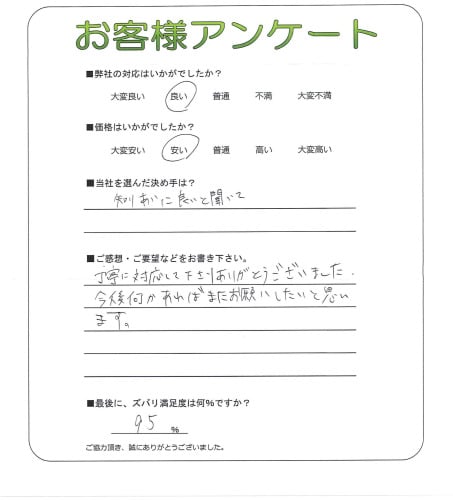 お客様アンケート
■弊社の対応はいかがでしたか？
大変良い 良い 普通 不満 大変不満
■価格はいかがでしたか？
大変安い 安い 普通 高い 大変高い
■当社を選んだ決め手は？
知りあいに良いと聞いて
■ご感想・ご要望などをお書き下さい。
丁寧に対応して下さりありがとうございました。
今後何かあればまたお願いしたいと思い
ます。
■最後に、ズバリ満足度は何%ですか？
95 %
ご協力頂き、誠にありがとうございました。